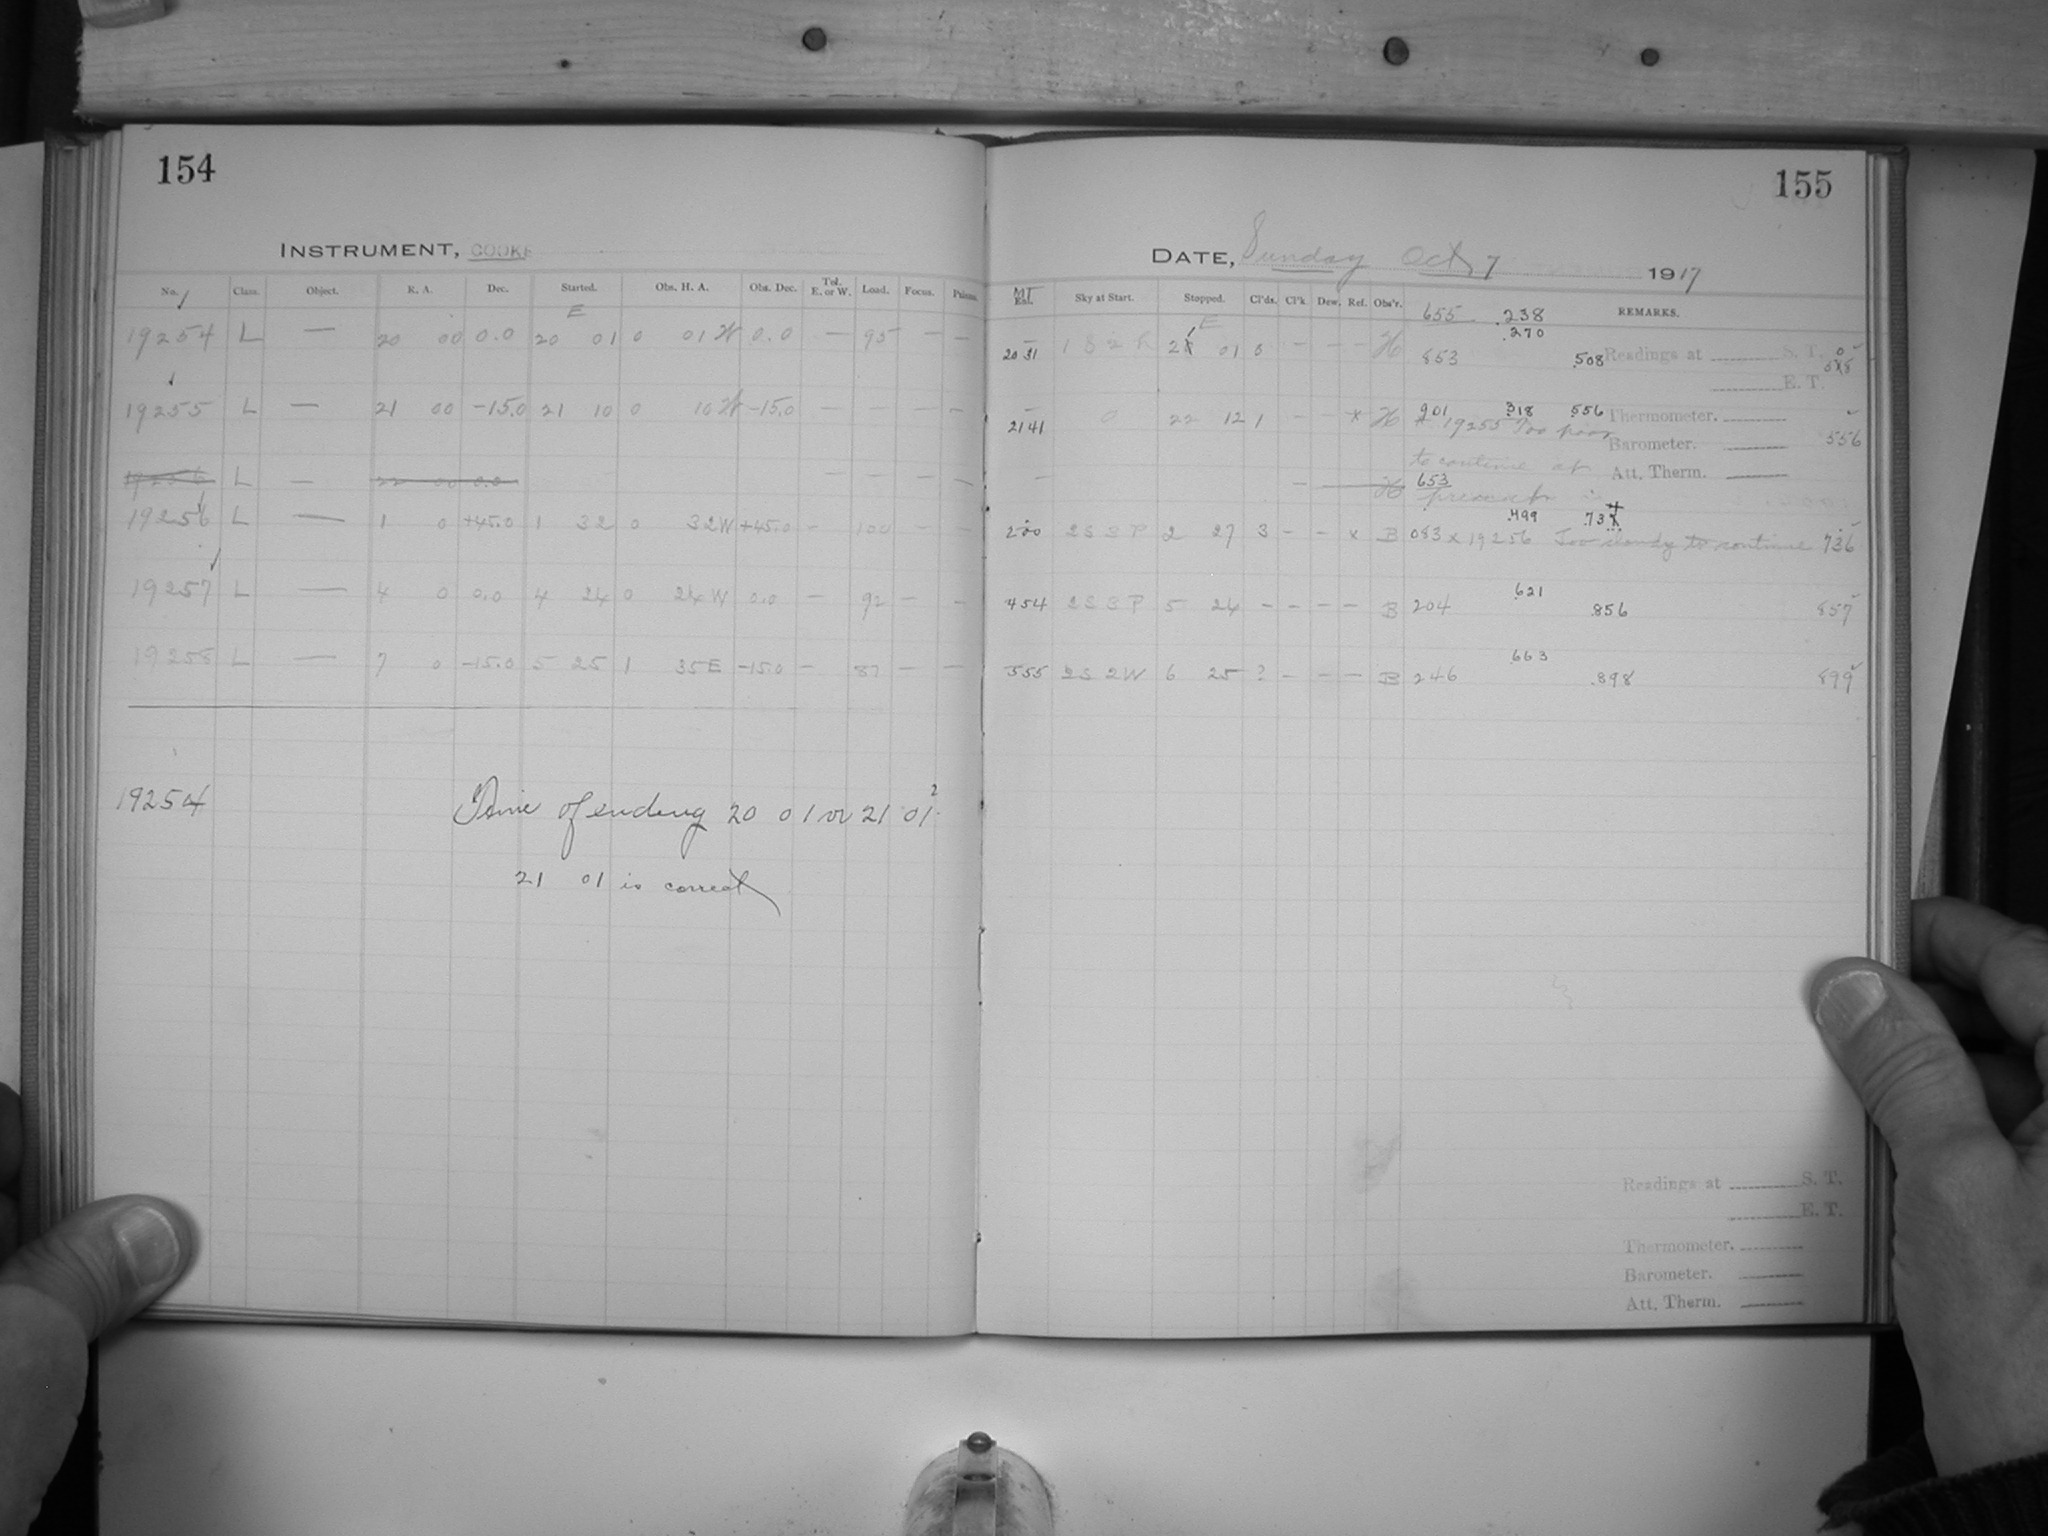 154
INSTRUMENT, COOKE
No. Class. Object. R. A. Dec. Started. Obs. H. A. Obs. Dec. Tel. E. or W. Load. Focus.
E
19254 L — 20 00 0.0 20 01 0 01 W 0.0 — 95 — —
19255 L — 21 00 -15.0 21 10 0 10 W -15.0 — — — —
19256 L — 22 00 0.0 — — — —
19256 L — 1 0 +45.0 1 32 0 32W +45.0 - 100 —
19257 L — 4 0 0.0 4 24 0 24W 0.0 — 92 — —
19258 L — 7 0 -15.0 5 25 1 35E -15.0 — 87 — —
19254 Time of ending 20 01 or 21 01?
21 01 is correct
155
DATE, Sunday Oct 7 1917
MT Sky at Start. Stopped. Cl'ds. Cl'k Dew. Ref. Obs'r. REMARKS.
655 .238
E .270
20 31 21 01 — — — H 853 .508 Readings at S. T.
E. T.
21 41 0 22 12 1 — — x H 901 .318 .556 Thermometer. 556
* 19255 Too poor
Barometer.
to continue at Att. Therm.
— — H 653
present
.499
2S3P 2 27 3 — — x B 083 x 19256 Too cloudy to continue 736
.621
454 2S3P 5 24 — — — — B 204 .856 857
.663
555 2S2W 6 25 ? — — — B 246 .898 899
Readings at S. T.
E. T.
Thermometer.
Barometer.
Att. Therm.